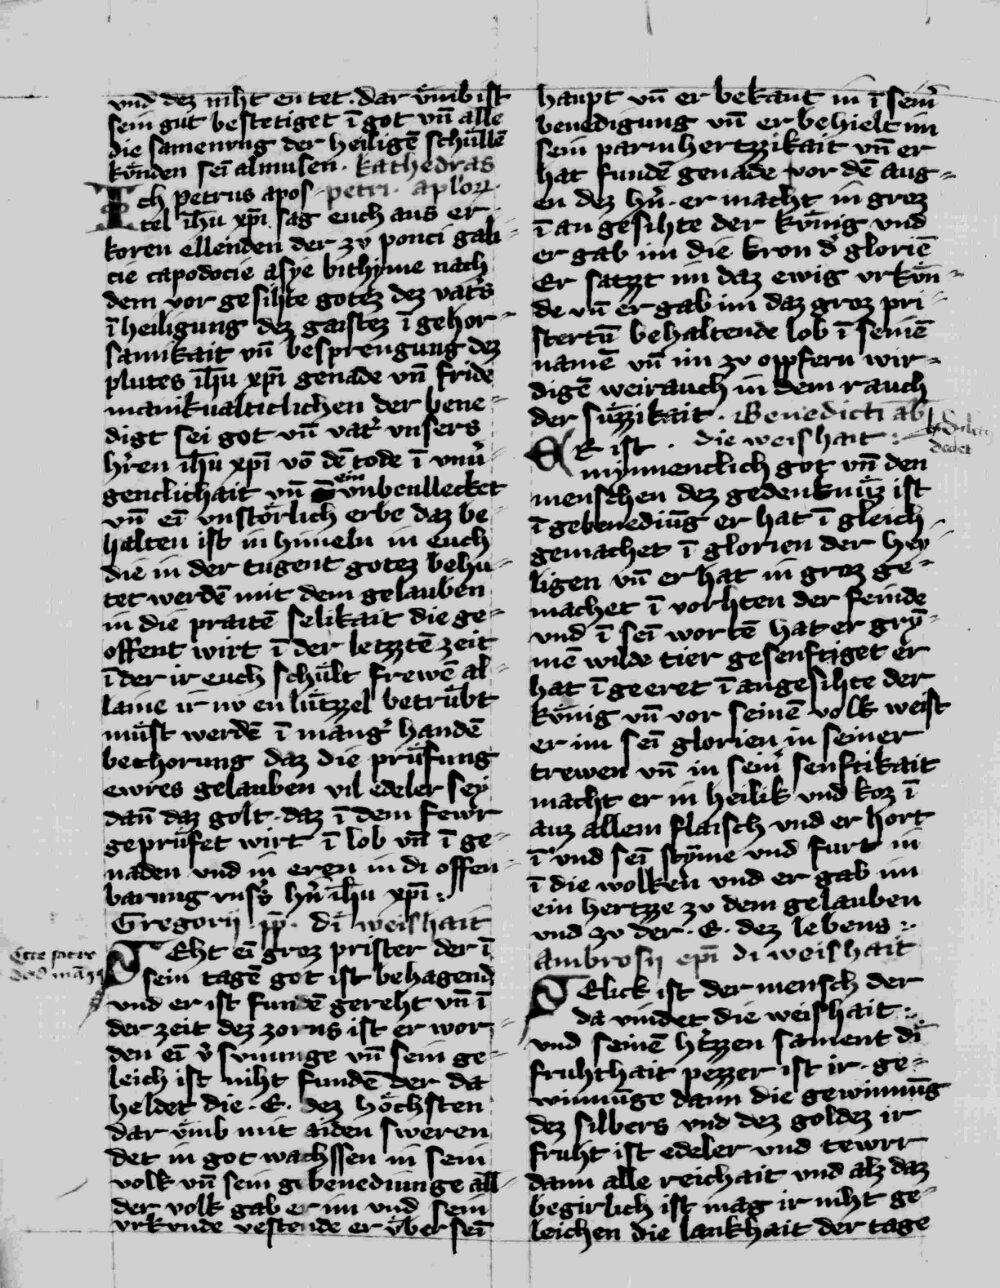 vnd dez niht en tet · dar vͤmb ist
sein gut bestetiget ī got vn̄ alle
die samenūg der heiligē schüllē
kvnden sei almusen · kathedras
Ich petrus apos · petri · aplor̄
tel ih̄u xp̄i sag euch aus er
koren ellenden der zv ponci gala
cie capodocie asye bithynie nach
dem vor gesihte gotez dez vat's
ī heiligung dez gaistez ī gehor-
samikait vn̄ besprengung dez
plutes ih̄u xp̄i genade vn̄ fride
manikualticlichen der bene-
digt sei got vn̄ vat' vnsers
h'ren ih̄u xp̄i vō dē tode ī vnu'
genclichait vn̄ ein vnbeulecket
vn̄ ei vnstörlich erbe daz be
halten ist in himeln in euch
die in der tugent gotez behu-
tet werdē mit dem gelauben
in die praitē selikait die ge-
offent wirt ī der letztē zeit
ī der ir euch schült frewē al-
laine ir nv en lützzel betrübt
müst werdē ī mang' handē
bechorung daz die prüfung
ewres gelauben vil edeler sey
dan̄ daz golt · daz ī dem fewr
geprüfet wirt ī lob vn̄ ī ge-
naden vnd in eren in di offen
barung vns's h'n ih̄u xp̄i :·
Gregorij pp̄ · di weishait
Seht ei groz prister der ī
sein tagē got ist behagend
vnd er ist fundē gereht vn̄ ī
der zeit dez zorns ist er wor-
den ei v'sununge vn̄ sein ge-
leich ist niht fundē der da
heldet die · E · dez höchsten
dar vͤmb mit aiden sweren
det in got wachssen in sein
volk vn̄ sein gebenediunge all
der volk gab er im vnd sein
vrkunde vestende er über sei
Ecce sacerdos
haupt vn̄ er bekant in ī sein'
benedigung vn̄ er behielt im
sein parmhertzzikait vn̄ er
hat fundē genade vor dē aug-
en dez h'n · er macht in groz
ī angesihte der künig vnd
er gab im die kron d' gloriē
Er satzt im daz ewig vrkün-
de vn̄ er gab im daz groz pri-
stertū behaltende lob ī seinē
namē vn̄ im zv oppfern wir-
digē weirauch in dem rauch
der süzzikait · Benedicti ab
Er ist · die weishait :·
mynnenclich got vn̄ den
menschen dez gedenknüz ist
ī gebenediūg er hat ī gleich
gemachet ī glorien der hey-
ligen vn̄ er hat in groz ge-
machet ī vorhten der feinde
vnd ī sei wortē hat er grȳ
mē wilde tier gesenftiget er
hat ī geeret ī angesihte der
künig vn̄ vor seinē volk weist
er im sei glorien in seiner
trewen vn̄ in sein' senftikait
macht er in heilik vnd koz ī
auz allem flaisch vnd er hort
ī vnd sei styme vnd furt in
ī die wolken vnd er gab im
ein hertzze zv dem gelauben
vnd zv der · E · dez lebens :·
Ambrosij epi di weishait
Selick ist der mensch der
da vindet die weishait :·
vnd seinē h'tzzen sament di
fruhthait pezzer ist ir ge-
winnūge dann die gewinnūg
dez silbers vnd dez goldez ir
fruht ist edeler vnd tewrr
dann alle reichait vnd alz daz
begirlich ist mag ir niht ge-
leichen die lankhait der tage